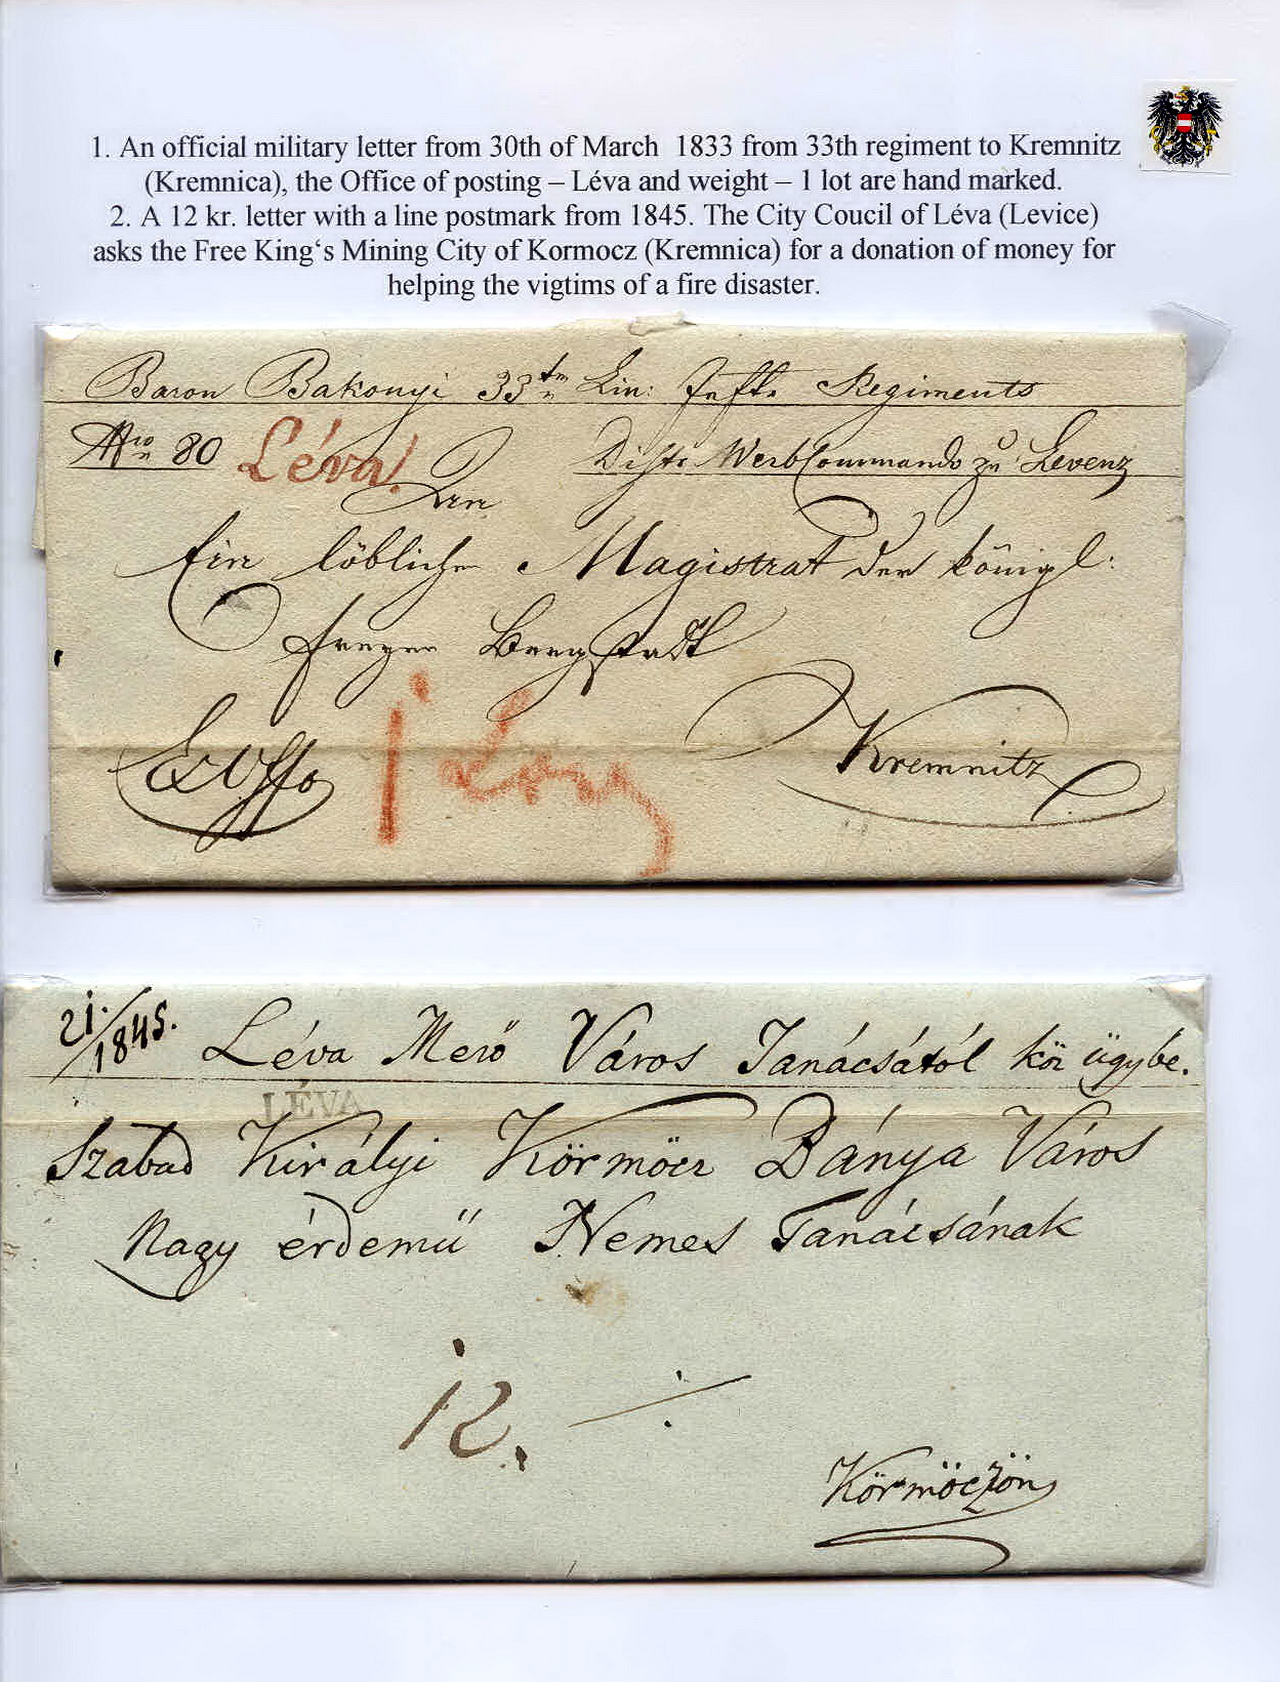 1. An official military letter from 30th of March 1833 from 33th regiment to Kremnitz
(Kremnica), the Office of posting – Léva and weight – 1 lot are hand marked.
2. A 12 kr. letter with a line postmark from 1845. The City Coucil of Léva (Levice)
asks the Free King‘s Mining City of Kormocz (Kremnica) for a donation of money for
helping the vigtims of a fire disaster.
Baron Bakonyi 33tn Lin: Inftr. Regiments
Nro 80 Léva! Distr. WerbCommando zu Levenz
An
Ein löbliche Magistrat der königl:
freyen Bergstadt
ExOffo 1 Kremnitz
21./1845. Léva Mező Város Tanácsától köz ügybe.
LÉVA
Szabad Királyi Körmöcz Bánya Város
Nagy érdemű Nemes Tanácsának
12.
Körmöczön